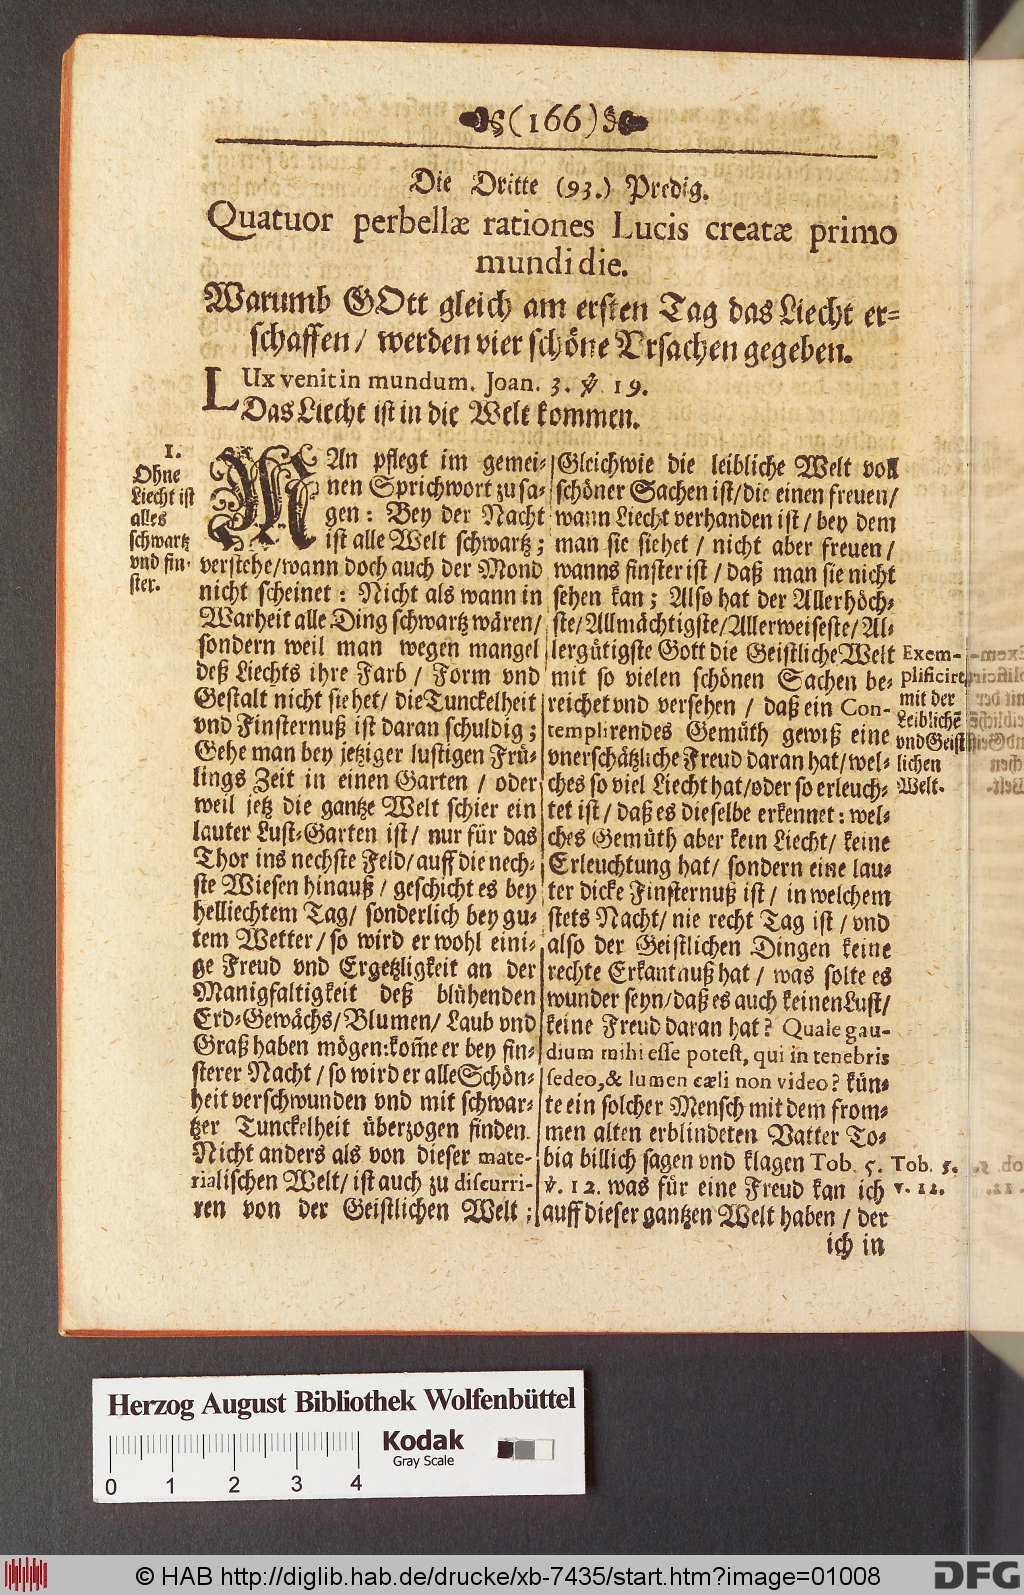 (166)
Die Dritte (93.) Predig.
Quatuor perbellæ rationes Lucis creatæ primo
mundi die.
Warumb GOtt gleich am ersten Tag das Liecht er=
schaffen / werden vier schöne Vrsachen gegeben.
LUx venit in mundum. Joan. 3. ℣ 19.
Das Liecht ist in die Welt kommen.
1.
Ohne
Liecht ist
alles
schwartz
vnd fin-
ster.
MAn pflegt im gemei-
nen Sprichwort zu sa-
gen: Bey der Nacht
ist alle Welt schwartz;
verstehe/wann doch auch der Mond
nicht scheinet: Nicht als wann in
Warheit alle Ding schwartz wären/
sondern weil man wegen mangel
deß Liechts ihre Farb / Form vnd
Gestalt nicht siehet/ die Tunckelheit
vnd Finsternuß ist daran schuldig;
Gehe man bey jetziger lustigen Frü-
lings Zeit in einen Garten / oder
weil jetz die gantze Welt schier ein
lauter Lust-Garten ist/ nur für das
Thor ins nechste Feld/ auff die nech-
ste Wiesen hinauß/ geschicht es bey
helliechtem Tag/ sonderlich bey gu-
tem Wetter/ so wird er wohl eini-
ge Freud vnd Ergetzligkeit an der
Manigfaltigkeit deß blühenden
Erd-Gewächs/ Blumen/ Laub vnd
Graß haben mögen: kom̃e er bey fin-
sterer Nacht/ so wird er alle Schön-
heit verschwunden vnd mit schwar-
tzer Tunckelheit überzogen finden.
Nicht anders als von dieser mate-
rialischen Welt/ ist auch zu discurri-
ren von der Geistlichen Welt;
Gleichwie die leibliche Welt voll
schöner Sachen ist/die einen freuen/
wann Liecht verhanden ist/ bey dem
man sie siehet / nicht aber freuen/
wanns finster ist/ daß man sie nicht
sehen kan; Also hat der Allerhöch-
ste/Allmächtigste/Allerweiseste/Al-
lergütigste Gott die Geistliche Welt
mit so vielen schönen Sachen be-
reichet vnd versehen / daß ein Con-
templirendes Gemüth gewiß eine
vnerschätzliche Freud daran hat/wel-
ches so viel Liecht hat/oder so erleuch-
tet ist/ daß es dieselbe erkennet: wel-
ches Gemüth aber kein Liecht/ keine
Erleuchtung hat/ sondern eine lau-
ter dicke Finsternuß ist / in welchem
stets Nacht/ nie recht Tag ist / vnd
also der Geistlichen Dingen keine
rechte Erkantnuß hat / was solte es
wunder seyn/daß es auch keinen Lust/
keine Freud daran hat? Quale gau-
dium mihi esse potest, qui in tenebris
sedeo, & lumen cæli non video? kün-
te ein solcher Mensch mit dem from-
men alten erblindeten Vatter To-
bia billich sagen vnd klagen Tob. 5.
℣. 12. was für eine Freud kan ich
auff dieser gantzen Welt haben / der
ich in
Exem-
plificirt
mit der
Leiblichẽ
vnd Geist
lichen
Welt.
Tob. 5.
v. 12.
Herzog August Bibliothek Wolfenbüttel
Kodak
Gray Scale
0 1 2 3 4
© HAB http://diglib.hab.de/drucke/xb-7435/start.htm?image=01008
DFG